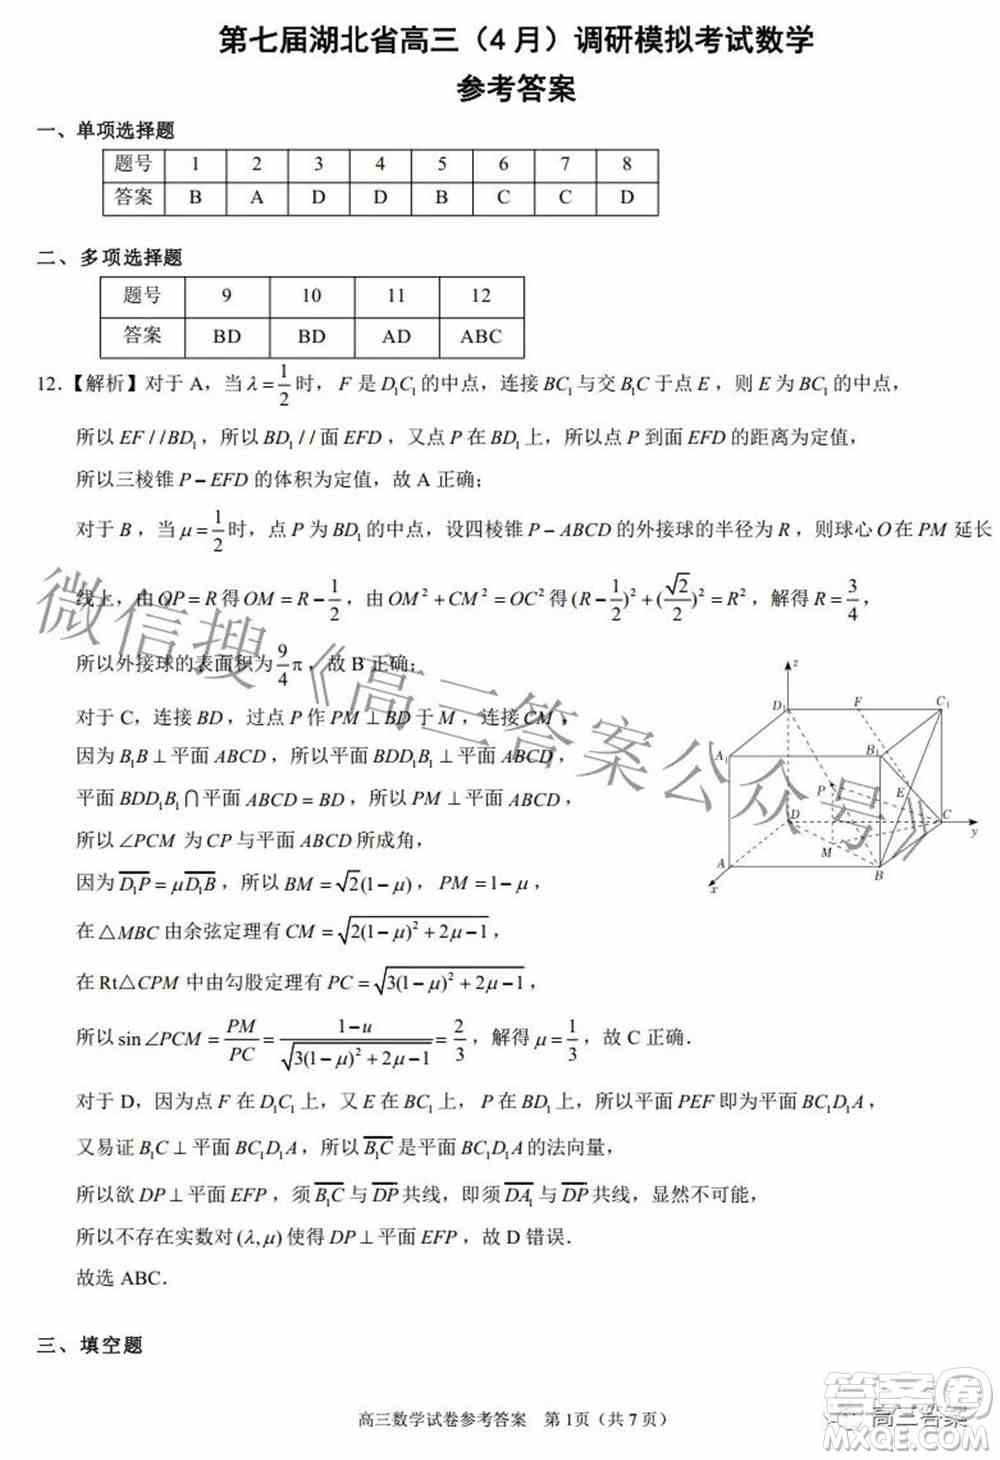 第七届湖北省高三（4月）调研模拟考试数学
参考答案
一、单项选择题
题号 1 2 3 4 5 6 7 8
答案 B A D D B C C D
二、多项选择题
题号 9 10 11 12
答案 BD BD AD ABC
12.【解析】对于 A，当 λ=1/2 时，F 是 D₁C₁ 的中点，连接 BC₁ 与交 B₁C 于点 E，则 E 为 BC₁ 的中点，
所以 EF//BD₁，所以 BD₁//面 EFD，又点 P 在 BD₁ 上，所以点 P 到面 EFD 的距离为定值，
所以三棱锥 P－EFD 的体积为定值，故 A 正确；
对于 B，当 μ=1/2 时，点 P 为 BD₁ 的中点，设四棱锥 P－ABCD 的外接球的半径为 R，则球心 O 在 PM 延长
线上，由 OP=R 得 OM=R－1/2，由 OM²+CM²=OC² 得 (R－1/2)²+(√2/2)²=R²，解得 R=3/4，
所以外接球的表面积为 9/4 π，故 B 正确；
对于 C，连接 BD，过点 P 作 PM⊥BD 于 M，连接 CM，
因为 B₁B⊥平面 ABCD，所以平面 BDD₁B₁⊥平面 ABCD，
平面 BDD₁B₁∩平面 ABCD=BD，所以 PM⊥平面 ABCD，
所以 ∠PCM 为 CP 与平面 ABCD 所成角，
因为 D₁P=μD₁B，所以 BM=√2(1－μ)，PM=1－μ，
在 △MBC 由余弦定理有 CM=√(2(1－μ)²+2μ－1)，
在 Rt△CPM 中由勾股定理有 PC=√(3(1－μ)²+2μ－1)，
所以 sin∠PCM=PM/PC=(1－u)/√(3(1－μ)²+2μ－1)=2/3，解得 μ=1/3，故 C 正确.
对于 D，因为点 F 在 D₁C₁ 上，又 E 在 BC₁ 上，P 在 BD₁ 上，所以平面 PEF 即为平面 BC₁D₁A，
又易证 B₁C⊥平面 BC₁D₁A，所以 B₁C 是平面 BC₁D₁A 的法向量，
所以欲 DP⊥平面 EFP，须 B₁C 与 DP 共线，即须 DA₁ 与 DP 共线，显然不可能，
所以不存在实数对 (λ,μ) 使得 DP⊥平面 EFP，故 D 错误.
故选 ABC.
z
D₁ F C₁
A₁ B₁
P E
D C y
M
A B
x
微信搜《高三答案公众号》
三、填空题
高三数学试卷参考答案 第1页（共7页）
高三答案
答案圈
MXQE.COM